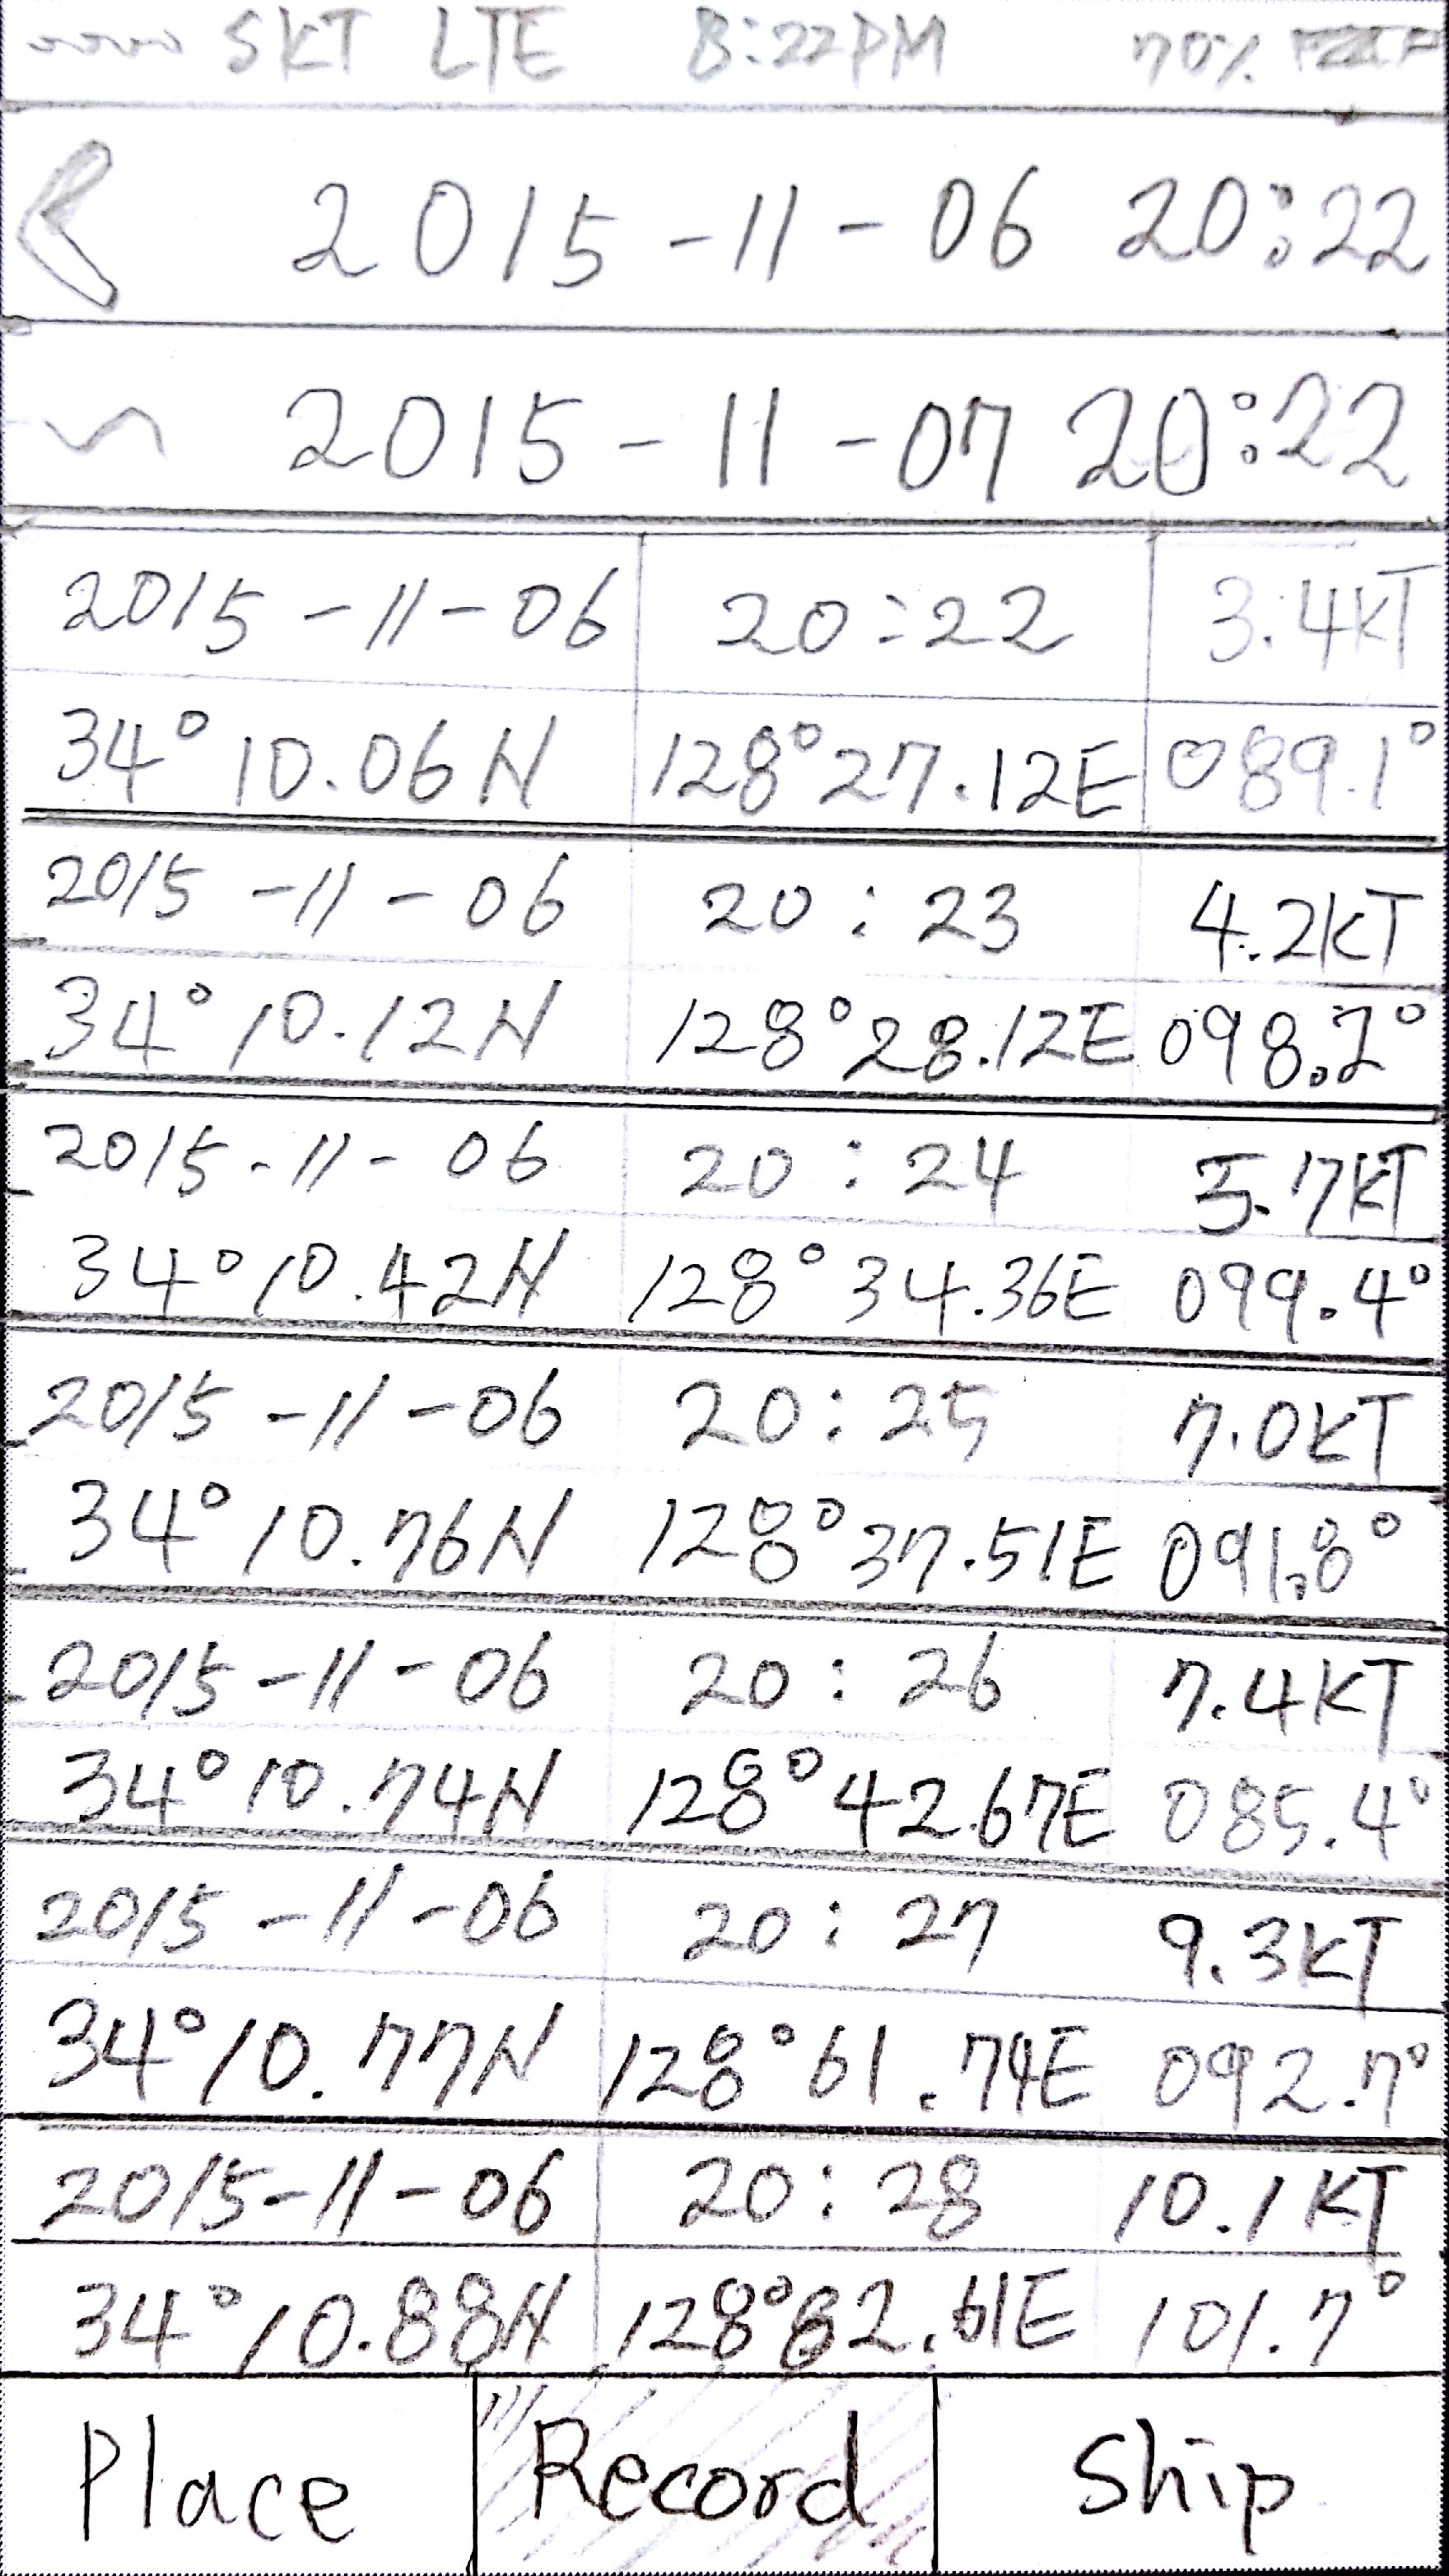 SKT LTE 8:22PM 70%
2015-11-06 20:22
~ 2015-11-07 20:22
2015-11-06 20:22 3.4KT
34°10.06N 128°27.12E 089.1°
2015-11-06 20:23 4.2KT
34°10.12N 128°28.12E 098.2°
2015-11-06 20:24 5.7KT
34°10.42N 128°34.36E 099.4°
2015-11-06 20:25 7.0KT
34°10.76N 128°37.51E 091.8°
2015-11-06 20:26 7.4KT
34°10.74N 128°42.67E 085.4°
2015-11-06 20:27 9.3KT
34°10.77N 128°61.74E 092.7°
2015-11-06 20:28 10.1KT
34°10.88N 128°62.61E 101.7°
Place Record Ship